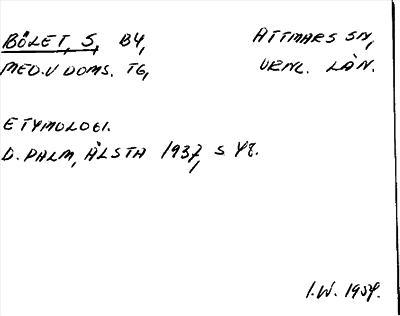 BÖLET, S, BY, ATTMARS SN,
MED.V DOMS. TG, VRNL. LÄN.
ETYMOLOGI.
D. PALM, ÄLSTA 1937, S 48.
I.W. 1959.